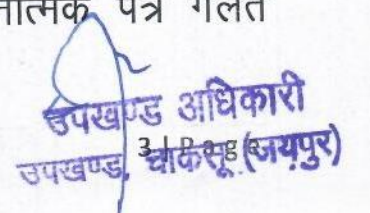 त्मक पत्र गलत
उपखण्ड अधिकारी
उपखण्ड, चाकसू (जयपुर)
3 | P a g e